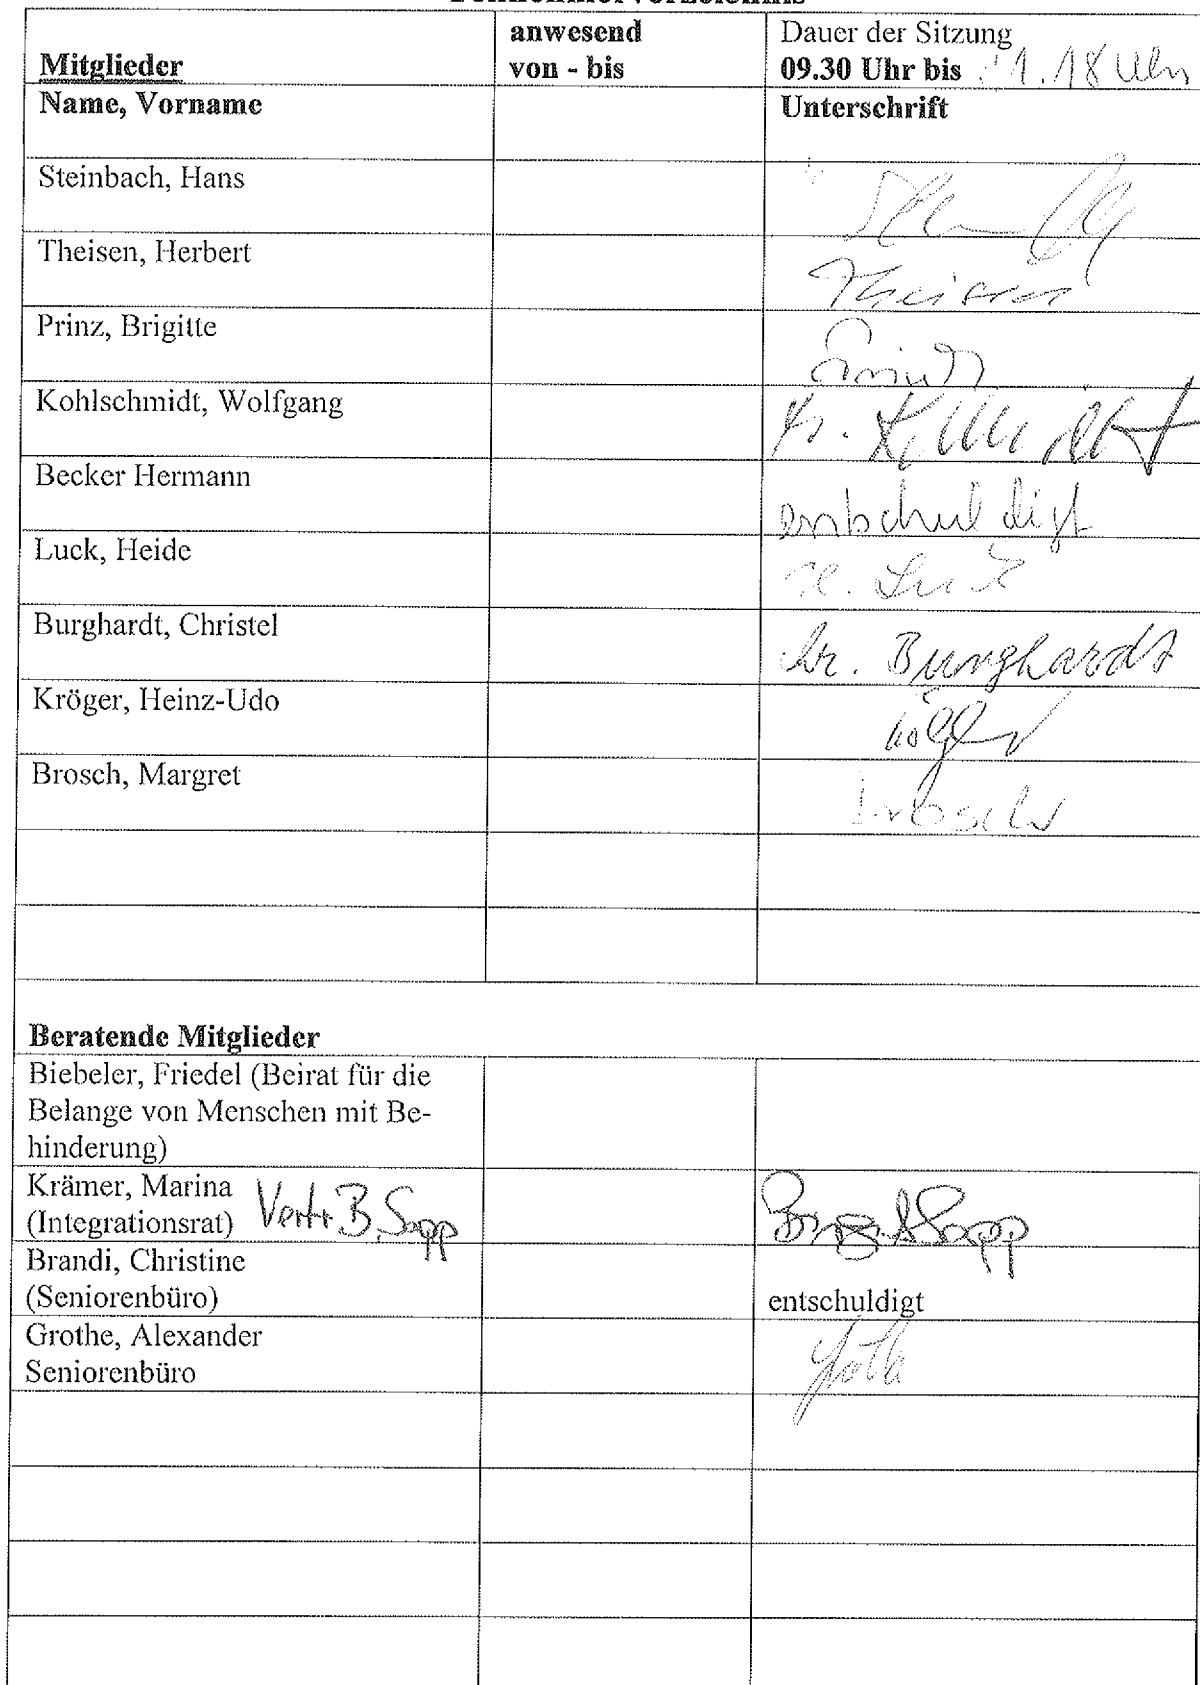 Teilnehmerverzeichnis
anwesend
Dauer der Sitzung
Mitglieder
von - bis
09.30 Uhr bis 11.18 Uhr
Name, Vorname
Unterschrift
Steinbach, Hans
Theisen, Herbert
Theisen
Prinz, Brigitte
Kohlschmidt, Wolfgang
Becker Hermann
entschuldigt
Luck, Heide
H. Luck
Burghardt, Christel
Chr. Burghardt
Kröger, Heinz-Udo
Brosch, Margret
Brosch
Beratende Mitglieder
Biebeler, Friedel (Beirat für die
Belange von Menschen mit Be-
hinderung)
Krämer, Marina
(Integrationsrat) Vertr. B. Sapp
Birgit Sapp
Brandi, Christine
(Seniorenbüro)
entschuldigt
Grothe, Alexander
Seniorenbüro